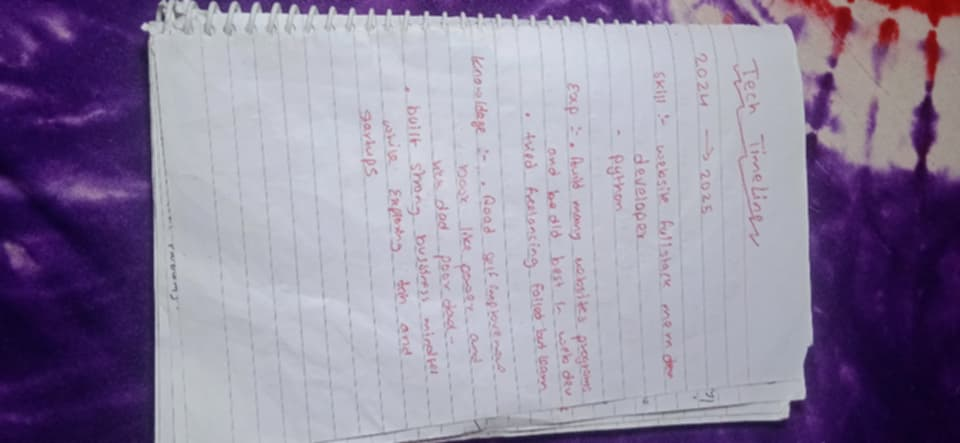 Tech Timeline
2024 → 2025
skill :- website fullstack mern dev
developer
• Python
Exp :- • Build many websites programs
and build best in web dev
• tried freelansing failed but learn
knowledge :- • Read self improvement
book like power and
rich dad poor dad -
• built strong business mindset
while Exploring tech and
startups